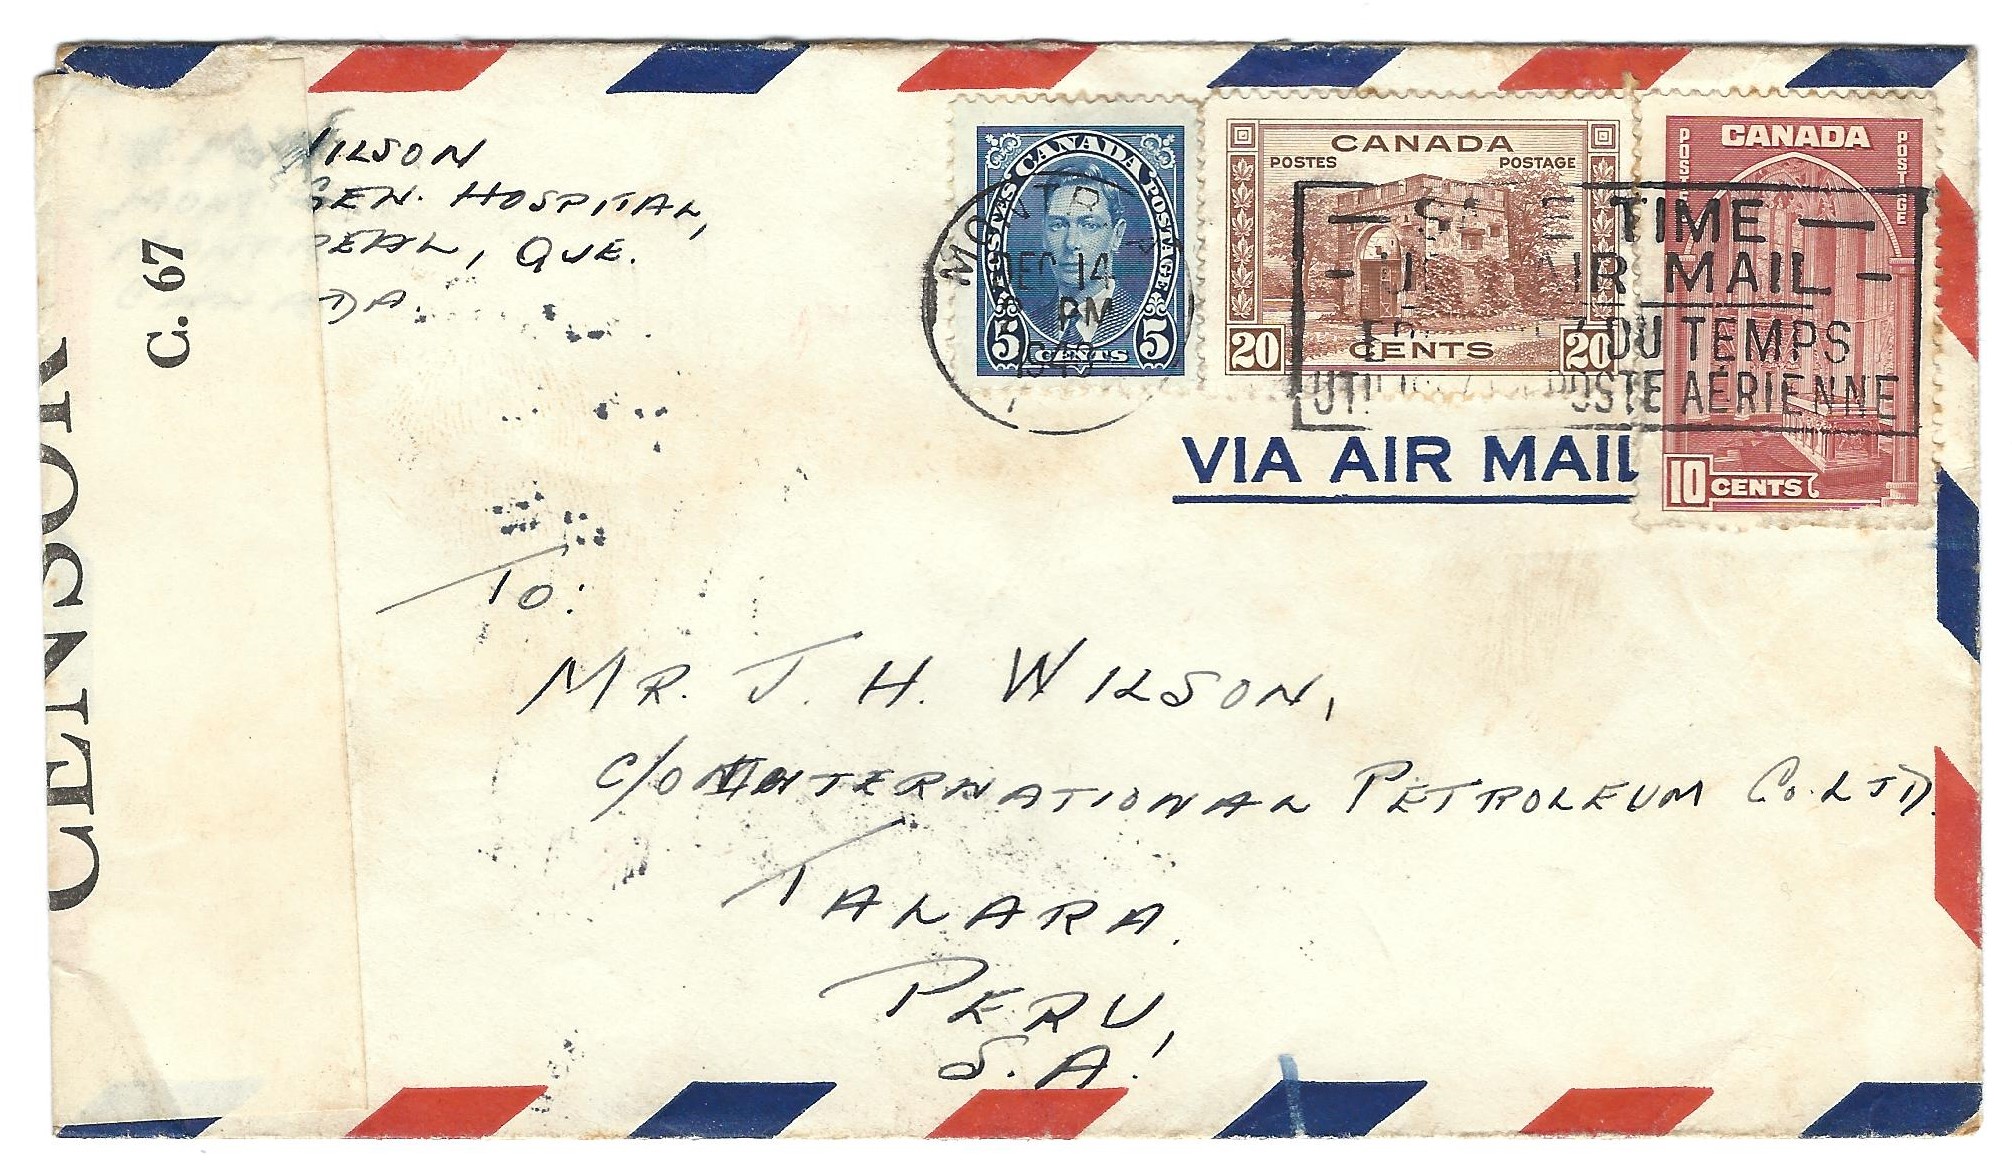 WILSON
GEN. HOSPITAL,
REAL, QUE.
DA.
C. 67
CENSOR
CANADA
POSTES POSTAGE
5 CENTS 5
CANADA
POSTES POSTAGE
20 CENTS 20
CANADA
POSTAGE
10 CENTS
MONTR
DEC 14
PM
1940
TIME
AIR MAIL
DU TEMPS
POSTE AÉRIENNE
VIA AIR MAIL
TO:
MR. J. H. WILSON,
C/O INTERNATIONAL PETROLEUM CO. LTD.
TALARA.
PERU,
S.A.